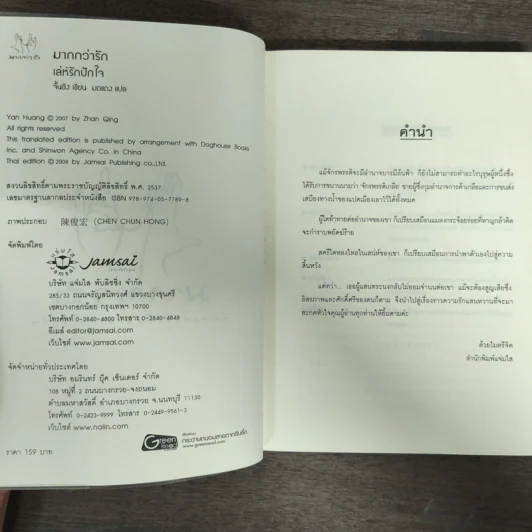 มากกว่ารัก
มากกว่ารัก
เล่ห์รักปักใจ
จั้นชิง เขียน มดแดง แปล
Yan Huang © 2007 by Zhan Qing
All rights reserved
This translated edition is published by arrangement with Doghouse Books
Inc. and Shinwon Agency Co. in China
Thai edition © 2008 by Jamsai Publishing co.,Ltd.
สงวนลิขสิทธิ์ตามพระราชบัญญัติลิขสิทธิ์ พ.ศ. 2537
เลขมาตรฐานสากลประจำหนังสือ ISBN 978-974-05-7789-8
ภาพประกอบ 陳俊宏 (CHEN CHUN HONG)
จัดพิมพ์โดย
jamsai
บริษัท แจ่มใส พับลิชชิ่ง จำกัด
285/33 ถนนจรัญสนิทวงศ์ แขวงบางขุนศรี
เขตบางกอกน้อย กรุงเทพฯ 10700
โทรศัพท์ 0-2840-4800 โทรสาร 0-2840-4848
อีเมล์ editor@jamsai.com
เว็บไซต์ www.jamsai.com
จัดจำหน่ายทั่วประเทศโดย
บริษัท อมรินทร์ บุ๊ค เซ็นเตอร์ จำกัด
108 หมู่ที่ 2 ถนนบางกรวย-จงถนอม
ตำบลมหาสวัสดิ์ อำเภอบางกรวย จ.นนทบุรี 11130
โทรศัพท์ 0-2423-9999 โทรสาร 0-2449-9561-3
เว็บไซต์ www.naiin.com
Green
พิมพ์บน
กระดาษถนอมสายตากรีนรี้ด
www.greenread.com
ราคา 159 บาท
คำนำ
แม้จักรพรรดิจะมีอำนาจบารมีล้นฟ้า ก็ยังไม่สามารถทำอะไรบุรุษผู้หนึ่งซึ่ง
ได้รับการขนานนามว่า จักรพรรดิเกลือ ชายผู้ซึ่งกุมอำนาจการค้าเกลือและการขนส่ง
เสบียงทางน้ำของแปดเมืองเอาไว้ได้ทั้งหมด
ผู้ใดท้าทายต่ออำนาจของเขา ก็เปรียบเสมือนแมลงกระจ้อยร่อยที่หาญกล้าคิด
จะกำราบพยัคฆ์ร้าย
สตรีใดหลงใหลในเสน่ห์ของเขา ก็เปรียบเสมือนการนำพาตัวเองไปสู่ความ
สิ้นหวัง
แต่ทว่า... เธอผู้แสนทระนงกลับไม่ยอมจำนนต่อเขา แม้จะต้องสูญเสียซึ่ง
อิสรภาพและศักดิ์ศรีของตนก็ตาม จึงนำไปสู่เรื่องราวความรักแสนหวานที่จะมา
สะกดหัวใจคุณผู้อ่านทุกท่านให้ยิ้มตามค่ะ
ด้วยไมตรีจิต
สำนักพิมพ์แจ่มใส